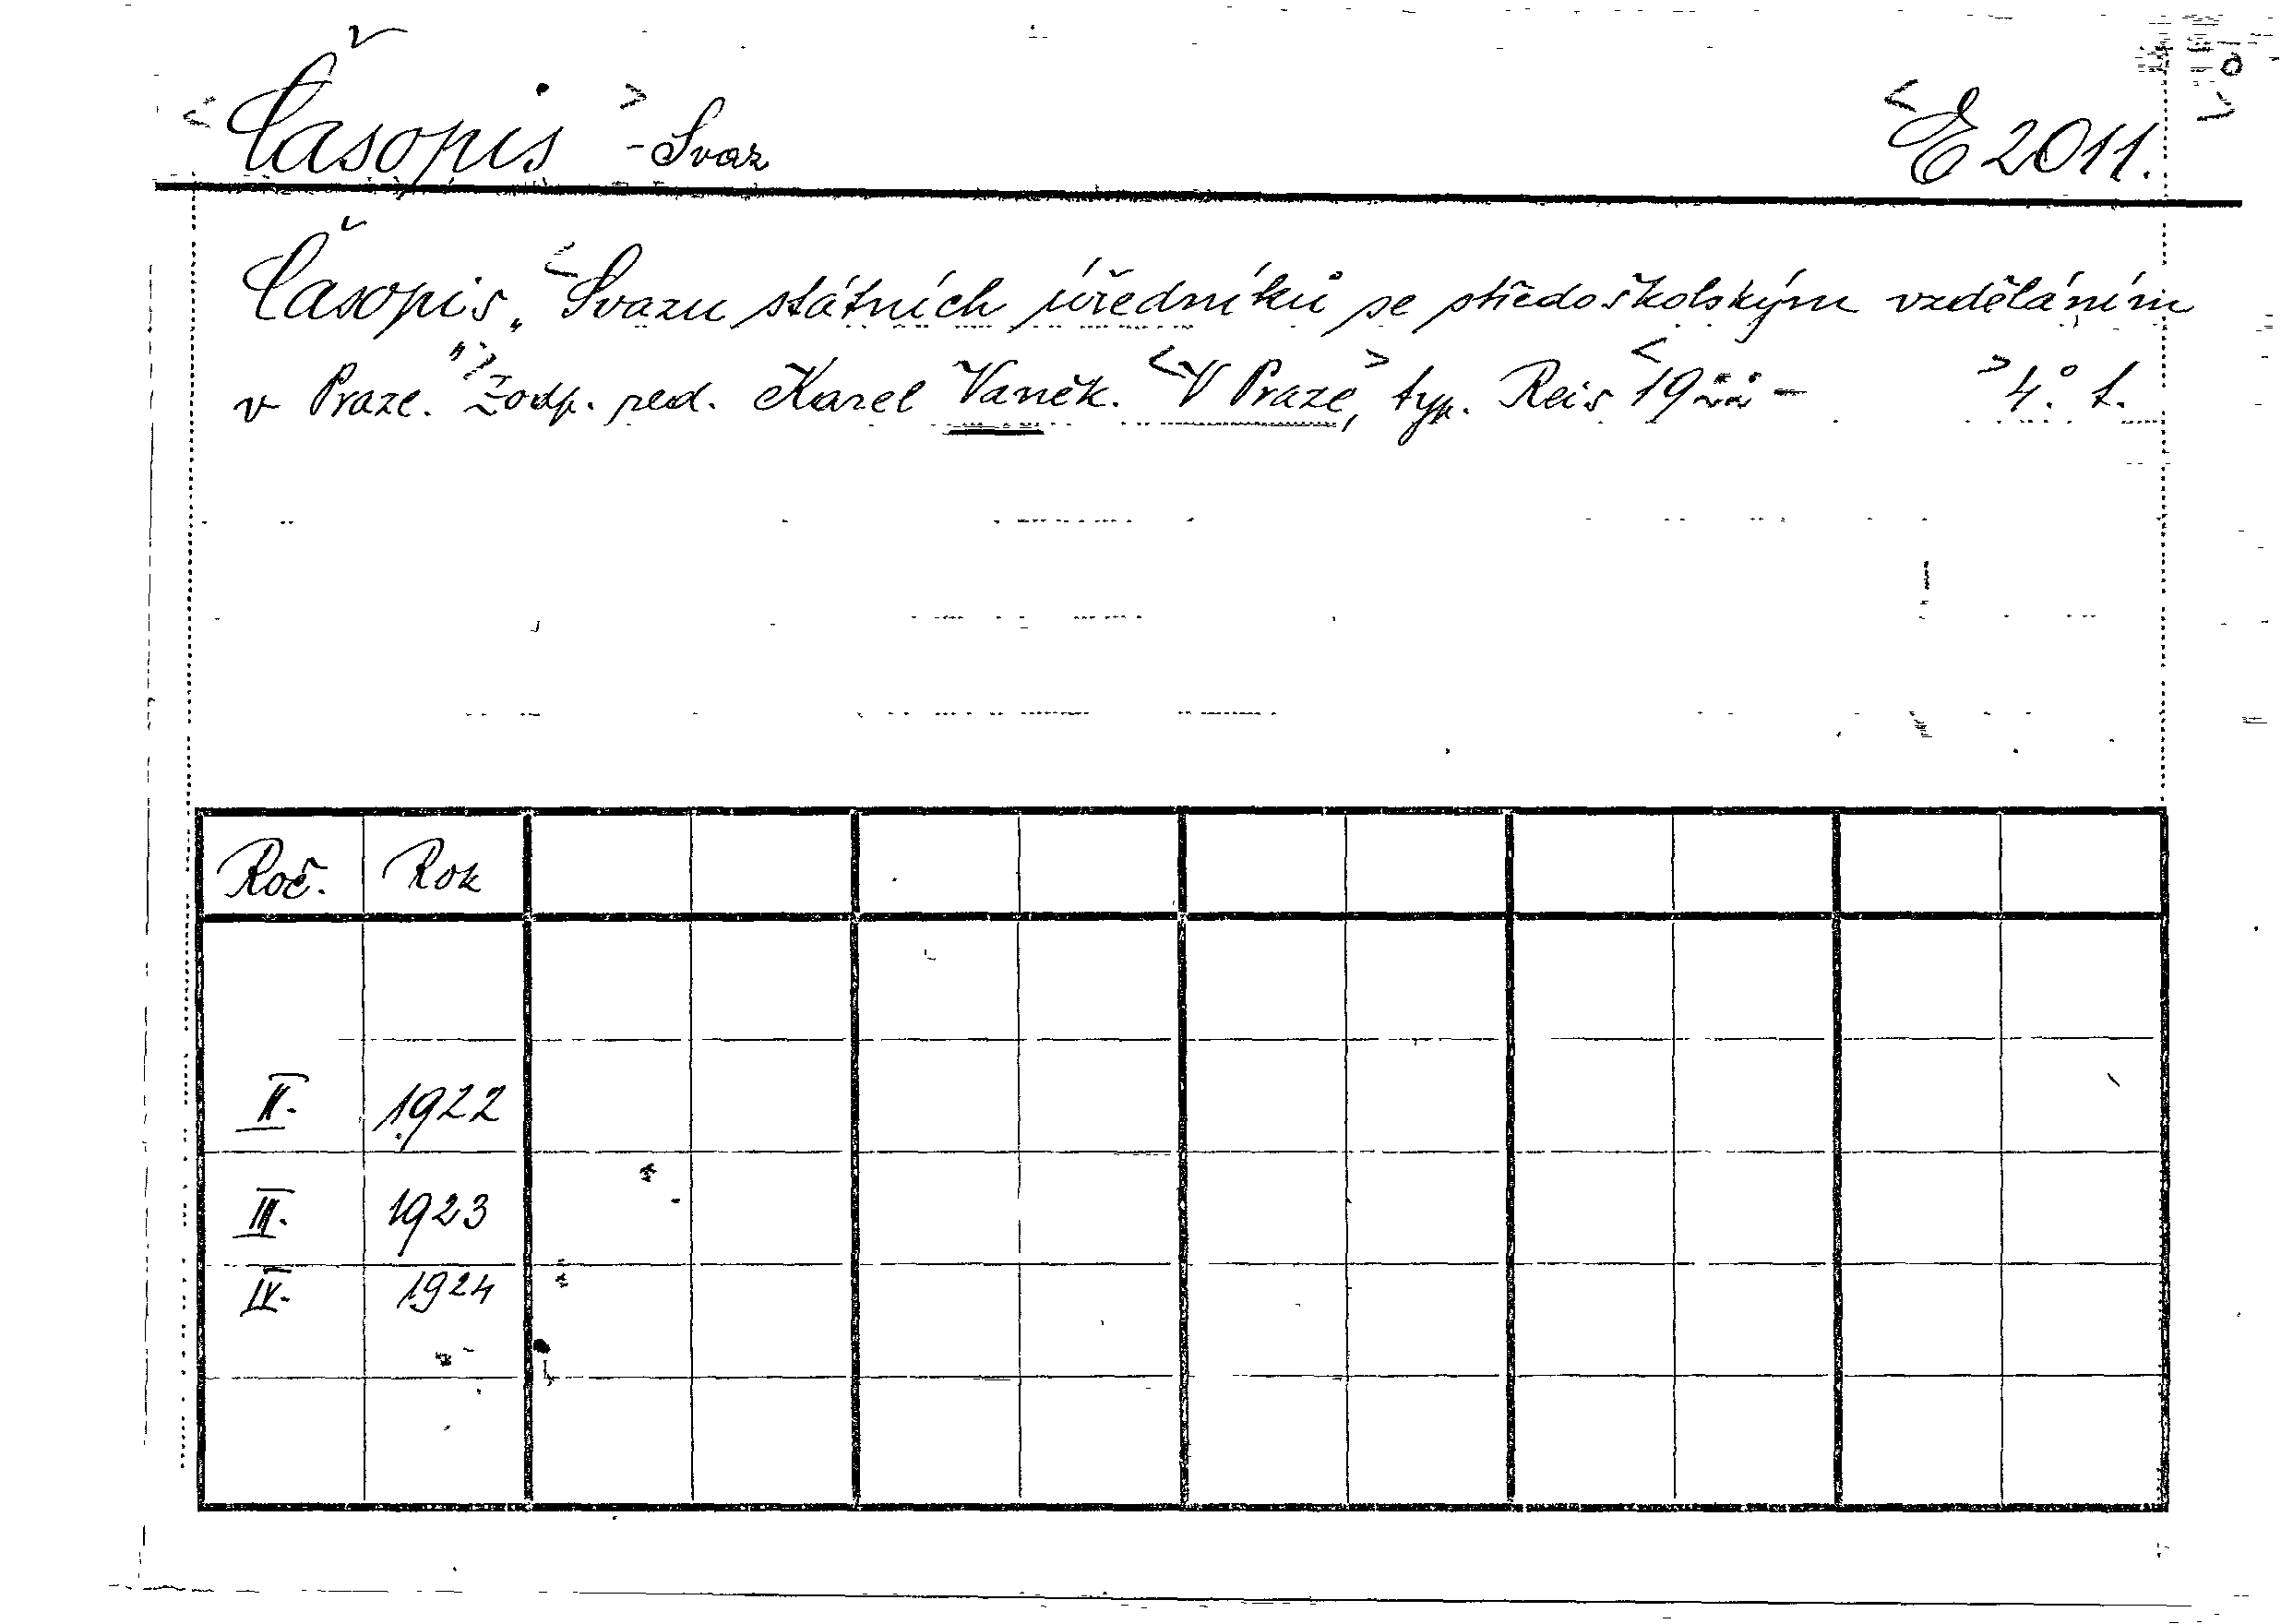 <Časopis> - Svaz <E 2011.>
Časopis „<Svazu státních úředníků se středoškolským vzděláním
v Praze.“> Zodp. red. Karel Vaněk. <V Praze,> typ. Reis <19 - > 4.° t.
Roč. Rok
II. 1922
III. 1923
IV. 1924